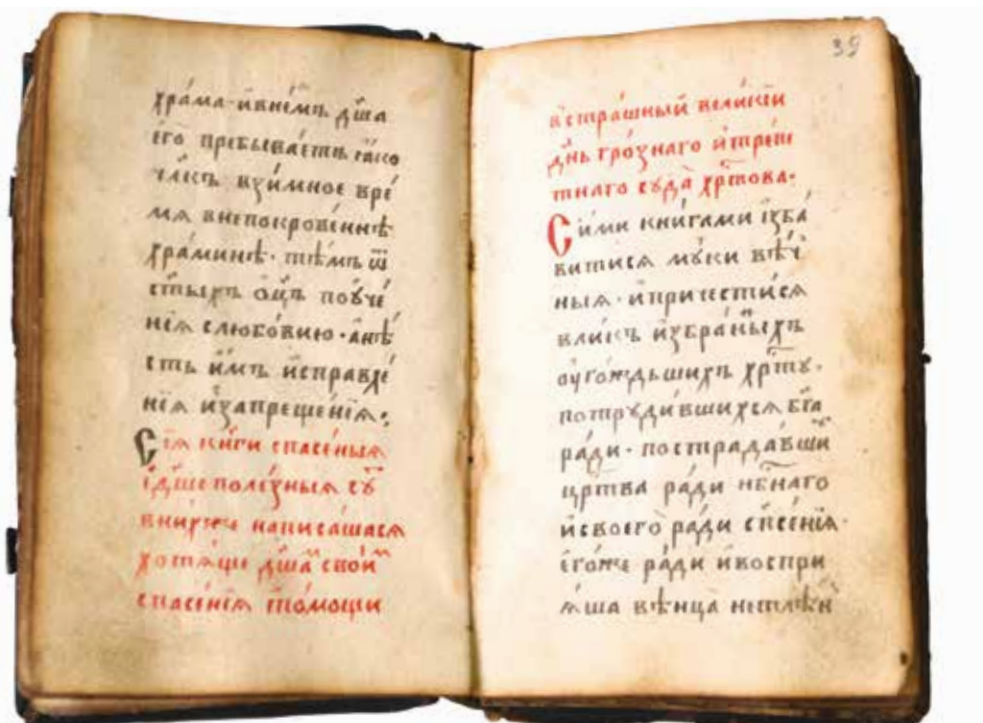 хра́ма· и́внє́мъ дш҃а
є҆го̀ прєбыва́єтъ ꙗ҆́ко
чл҃къ взи́мноє врє́
мѧ внєпокровє́ннѣ
хра́минѣ· тѣ́мъ ѿ
ст҃ы́хъ ѻ҆ц҃ъ поꙋчє́
нїѧ слюбо́вїю· а҆нѣ́
сть и҆́мъ и҆справлє́
нїѧ и҆запрєщє́нїѧ·
Сїѧ̀ кни́ги спасє́ныѧ
и҆дш҃єполє́зныѧ сꙋ́т
вни́хжє написа́шасѧ
хотѧ́щє дш҃а́м свои́м
спасє́нїѧ и҆по́мощи
встра́шный вєли́кїй
дн҃ь гро́знаго и҆трє́пє
тнаго сꙋда̀ хрⷭ҇това·
Си́ми кни́гами и҆зба́
витисѧ мꙋ́ки вѣ́ч
ныѧ· и҆причєсти́сѧ
вли́къ и҆збра́нныхъ
ᲂу҆гождьшихъ хрⷭ҇тꙋ·
потрꙋди́вшихсѧ бг҃а
ра́ди· пострада́вши
црⷭ҇тва ра́ди нбⷭ҇наго
и҆своєго̀ ра́ди сп҃сє́нїѧ·
є҆го́жє ра́ди и҆воспри
ѧ́ша вѣнца̀ нєтлѣ́н
39